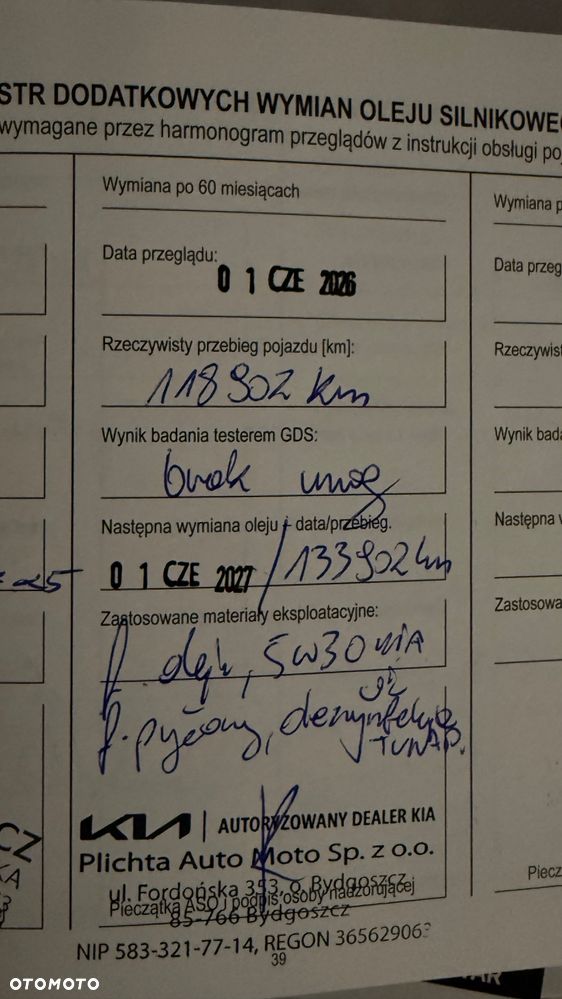 STR DODATKOWYCH WYMIAN OLEJU SILNIKOWEG
wymagane przez harmonogram przeglądów z instrukcji obsługi po
Wymiana po 60 miesiącach
Wymiana p
Data przeglądu:
0 1 CZE 2026
Data przeg
Rzeczywisty przebieg pojazdu [km]:
118902 km
Rzeczywist
Wynik badania testerem GDS:
brak uwag
Wynik bada
Następna wymiana oleju - data/przebieg.
0 1 CZE 2027 / 133902 km
Następna w
Zastosowane materiały eksploatacyjne:
f olej, 5W30 KIA
f. pyłkowy, dezynfekcja
TUNAP.
Zastosowa
KIA | AUTORYZOWANY DEALER KIA
Plichta Auto Moto Sp. z o.o.
ul. Fordońska 353, o. Bydgoszcz
Pieczątka ASO i podpis osoby nadzorującej
85-766 Bydgoszcz
Piecz
NIP 583-321-77-14, REGON 365629063
39
OTOMOTO